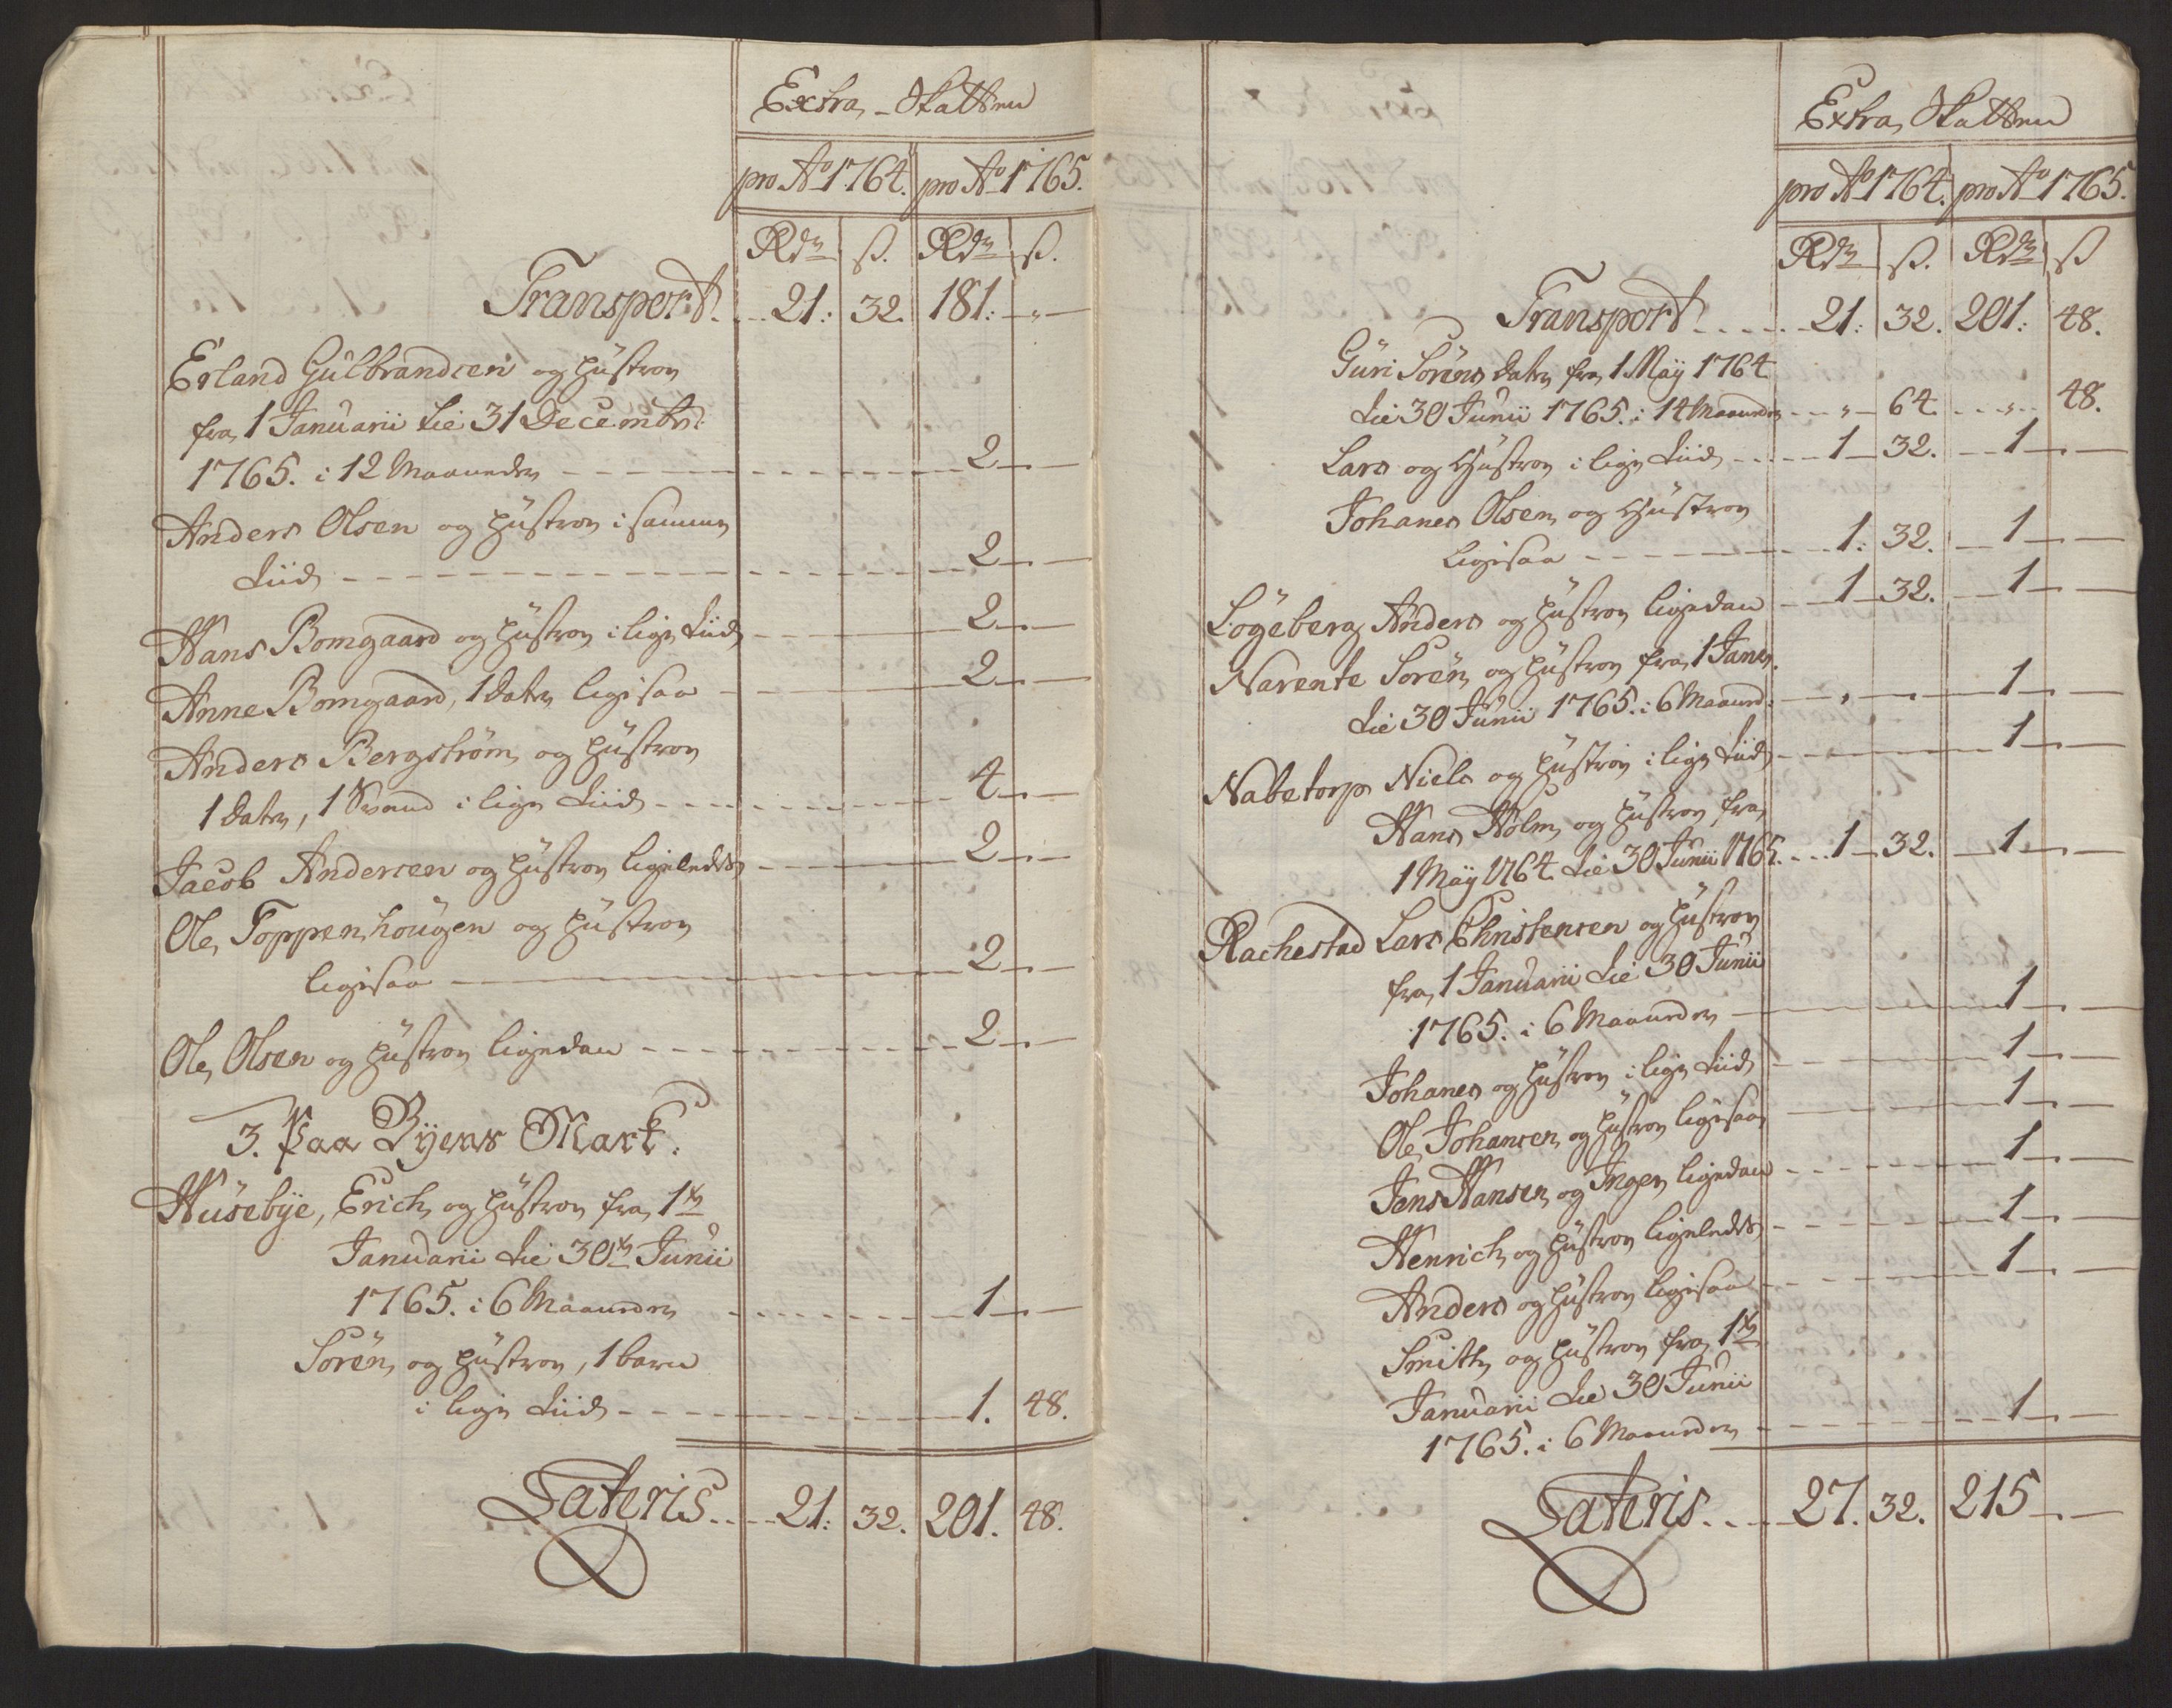 Extra-Skatten
pro Ao 1764. pro Ao 1765.
Rdr ß. Rdr ß.
Transport 21: 32. 181: "
Erland Gülbrandsen og Hüstroe
fra 1 Januarii til 31 Decembr:
1765. i 12 Maaneder 2
Anders Olsen og Hüstroe i samme
tiid 2
Hans Bomgaard og Hüstroe i lige tiid 2
Anne Bomgaard, 1 Dater ligesaa 2
Anders Bergstrøm og Hüstroe
1 Dater, 1 Svend i lige tiid 4
Jacob Andersen og Hüstroe ligeledes 2
Ole Toppenhoügen og Hüstroe
ligesaa 2
Ole Olsen og Hüstroe ligedan 2
3. Paa Byens Mark.
Hüsebÿe, Erich og Hüstroe fra 1te
Januarii til 30te Junii
1765. i 6 Maaneder 1
Sören og Hüstroe, 1 barn
i lige tiid 1. 48.
Lateris 21: 32. 201. 48.
Extra Skatten
pro Ao 1764. pro Ao 1765.
Rdr ß. Rdr ß
Transport 21: 32. 201: 48.
Güri Sörens Dater fra 1 Maÿ 1764
til 30 Junii 1765. i 14 Maaneder " 64. " 48.
Lars og Hüstroe i lige tiid 1 32. 1
Johanes Olsen og Hüstroe
ligesaa 1: 32. 1
Lögeberg Anders og Hüstroe ligedan 1 32. 1
Narente Sorën og Hüstroe fra 1 Janr.
til 30 Junii 1765. i 6 Maaned: " 1
Nabetorp Niels og Hüstroe i lige tiid 1
Hans Holm og Hüstroe fra
1 Maÿ 1764 til 30 Junii 1765. 1 32. 1
Rachestad Lars Christensen og Hüstroe
fra 1 Januarii til 30 Junii
1765. i 6 Maaneder 1
Johanes og Hüstroe i lige tiid 1
Ole Johansen og Hüstroe ligesaa 1
Jens Hansen og Inger ligedan 1
Henrich og Hüstroe ligeledes 1
Anders og Hüstroe ligesaa 1
Smith og Hüstroe fra 1te
Januarii til 30 Junii
1765. i 6 Maaneder 1
Lateris 27. 32. 215